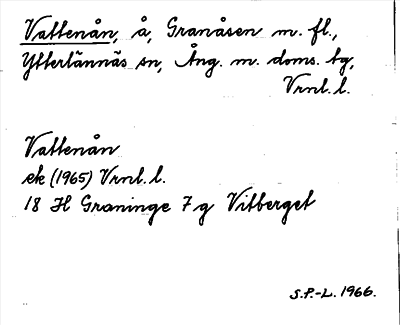 Vattenån, å, Granåsen m. fl.,
Ytterlännäs sn, Ång. m. doms. tg,
Vrnl. l.
Vattenån
ek (1965) Vrnl. l.
18 H Graninge 7 g Vitberget
S.P.-L. 1966.